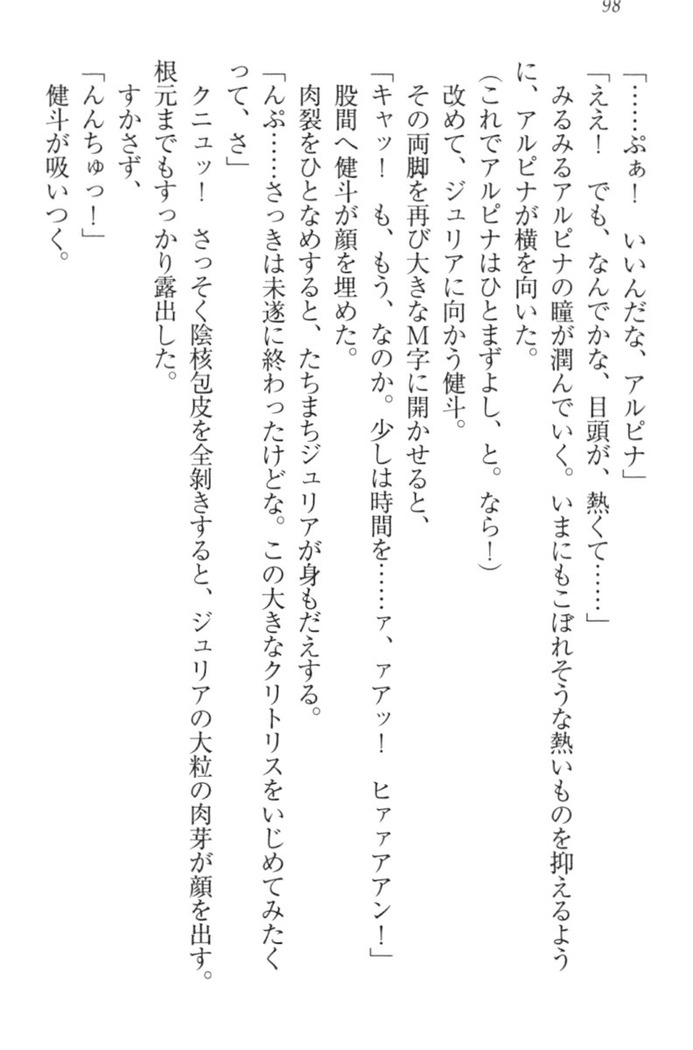 98
「……ぷぁ！　いいんだな、アルピナ」
「ええ！　でも、なんでかな、目頭が、熱くて……」
　みるみるアルピナの瞳が潤んでいく。いまにもこぼれそうな熱いものを抑えるよう
に、アルピナが横を向いた。
（これでアルピナはひとまずよし、と。なら！）
　改めて、ジュリアに向かう健斗。
　その両脚を再び大きなＭ字に開かせると、
「キャッ！　も、もう、なのか。少しは時間を……ァ、ァアッ！　ヒァァアアン！」
　股間へ健斗が顔を埋めた。
　肉裂をひとなめすると、たちまちジュリアが身もだえする。
「んぷ……さっきは未遂に終わったけどな。この大きなクリトリスをいじめてみたく
って、さ」
　クニュッ！　さっそく陰核包皮を全剝きすると、ジュリアの大粒の肉芽が顔を出す。
根元までもすっかり露出した。
　すかさず、
「んんちゅっ！」
　健斗が吸いつく。